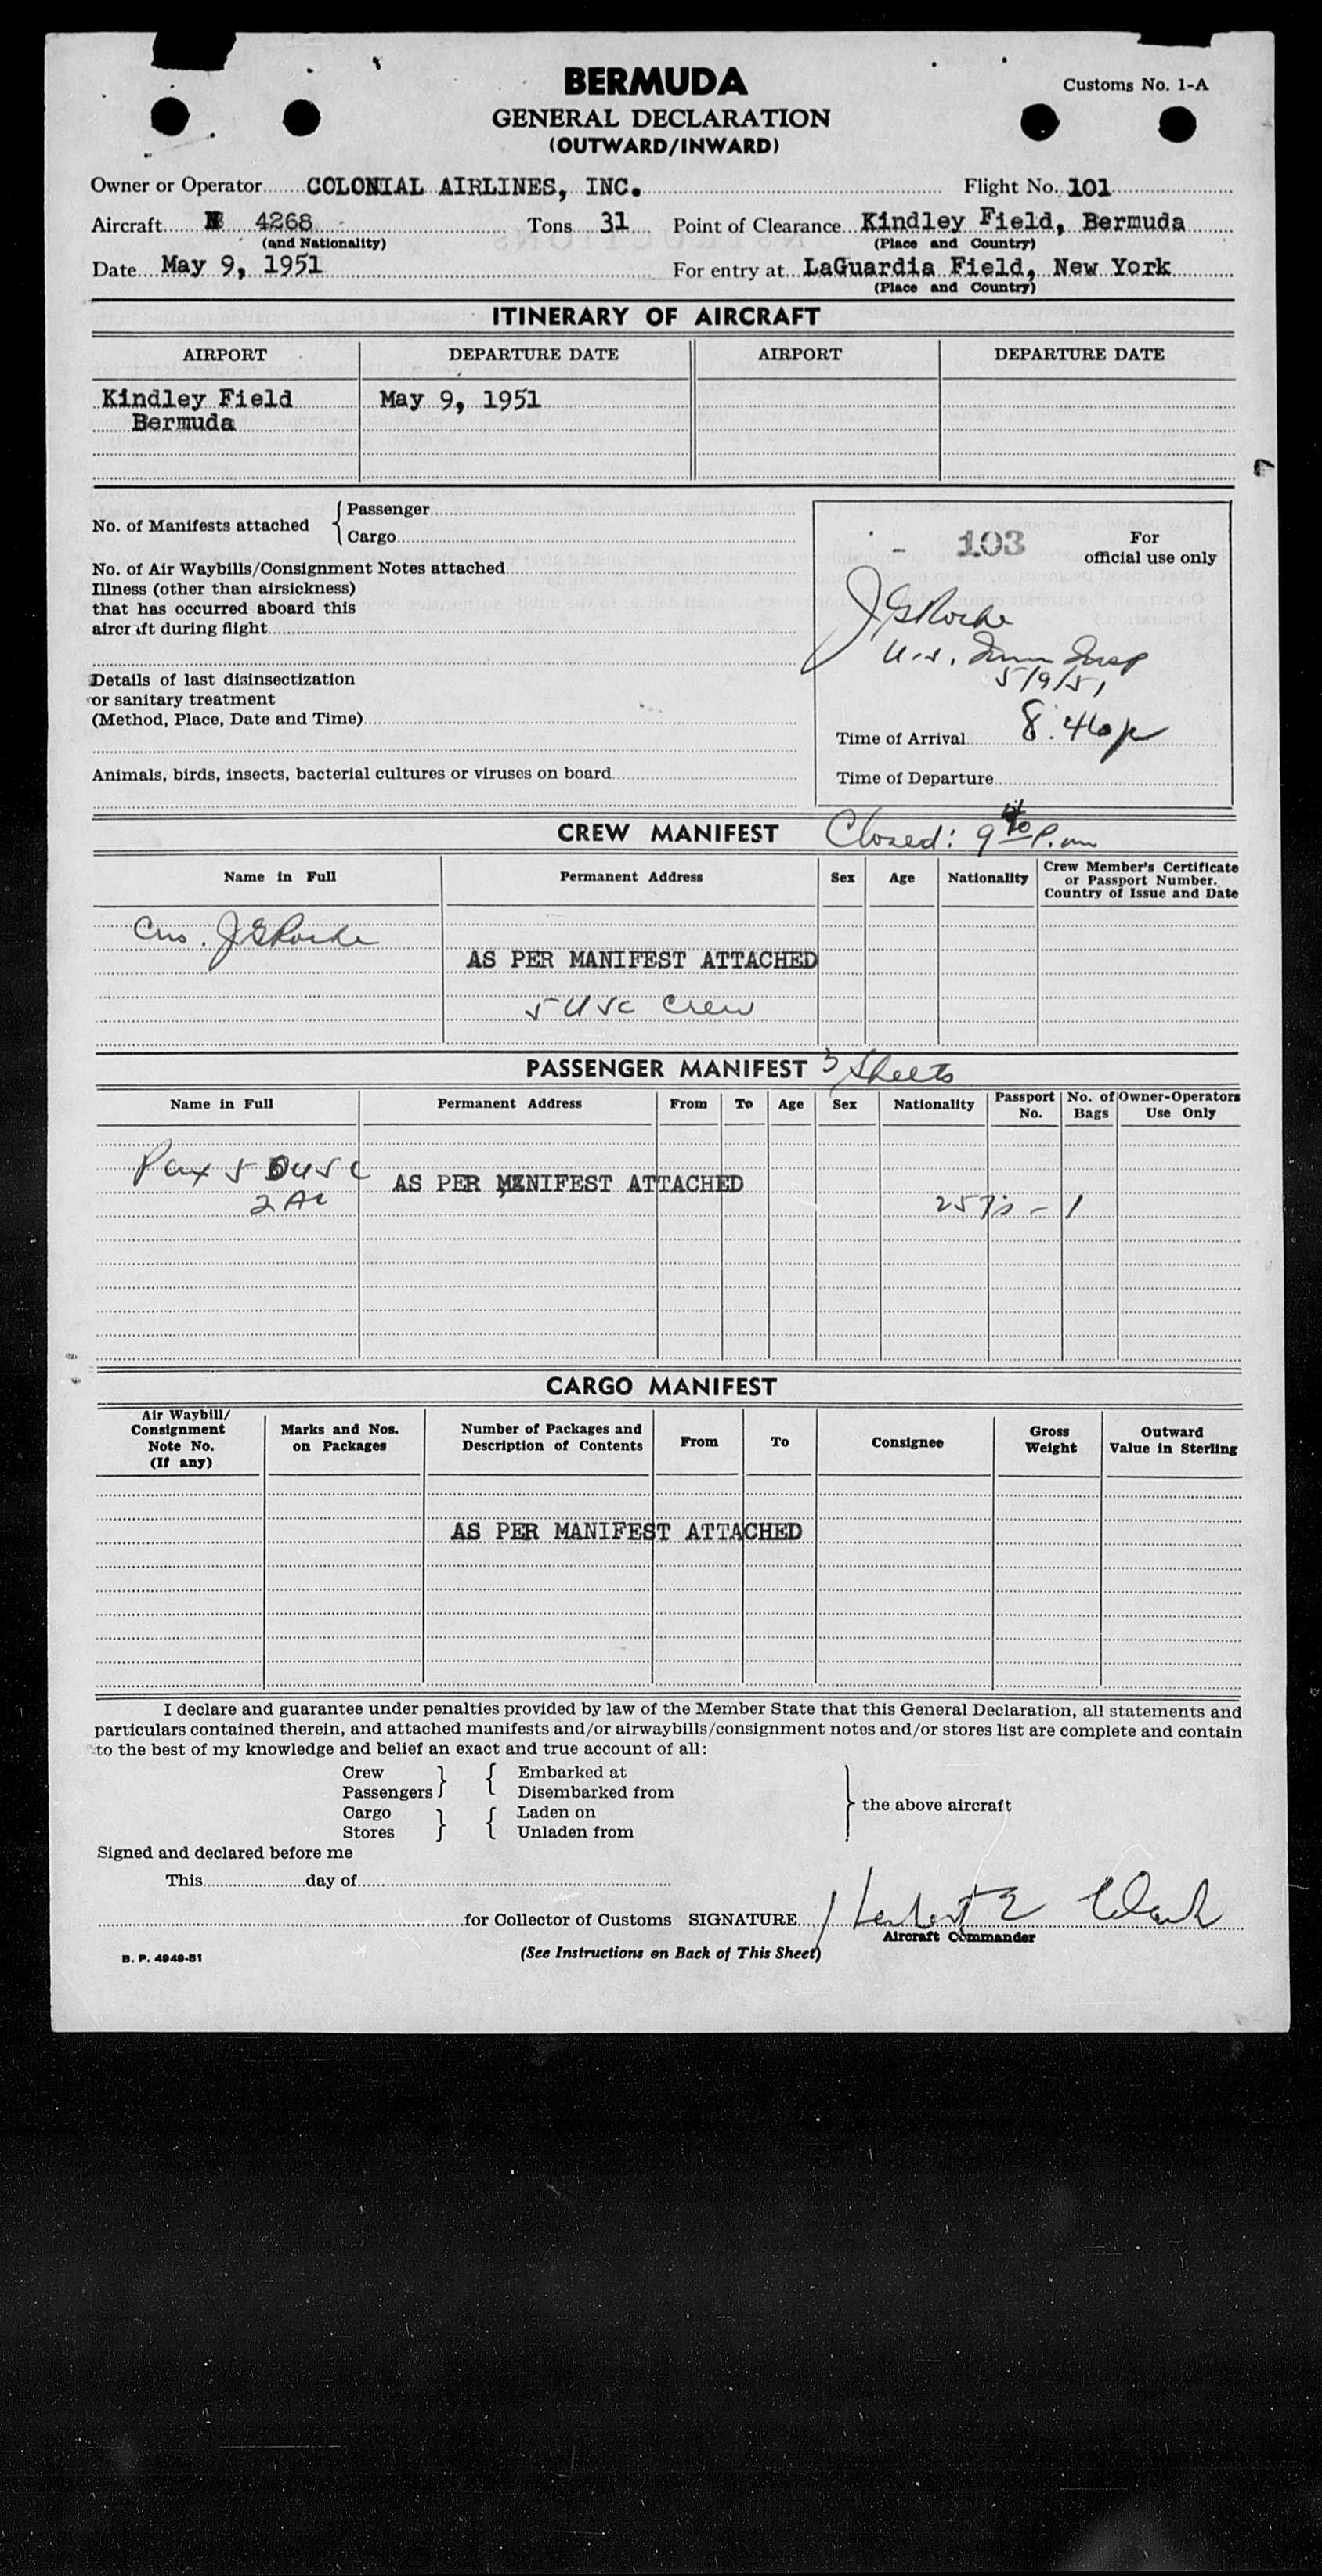 BERMUDA
Customs No. 1-A
GENERAL DECLARATION
(OUTWARD/INWARD)
Owner or Operator COLONIAL AIRLINES, INC. Flight No. 101
Aircraft N 4268 Tons 31 Point of Clearance Kindley Field, Bermuda
(and Nationality) (Place and Country)
Date May 9, 1951 For entry at LaGuardia Field, New York
(Place and Country)
ITINERARY OF AIRCRAFT
AIRPORT DEPARTURE DATE AIRPORT DEPARTURE DATE
Kindley Field May 9, 1951
Bermuda
No. of Manifests attached { Passenger
Cargo
No. of Air Waybills/Consignment Notes attached
Illness (other than airsickness)
that has occurred aboard this
aircraft during flight
Details of last disinsectization
or sanitary treatment
(Method, Place, Date and Time)
Animals, birds, insects, bacterial cultures or viruses on board
- 103 For
official use only
J G Roche
U.S. Imm Insp
5/9/51
Time of Arrival 8:46 p
Time of Departure
CREW MANIFEST Closed: 9 P.m
Name in Full Permanent Address Sex Age Nationality Crew Member's Certificate
or Passport Number.
Country of Issue and Date
J G Roche
AS PER MANIFEST ATTACHED
5 USC Crew
PASSENGER MANIFEST 3 Sheets
Name in Full Permanent Address From To Age Sex Nationality Passport No. No. of Bags Owner-Operators Use Only
Pax 50 USC AS PER MANIFEST ATTACHED
2 AL 257s - 1
CARGO MANIFEST
Air Waybill/
Consignment
Note No.
(If any) Marks and Nos.
on Packages Number of Packages and
Description of Contents From To Consignee Gross
Weight Outward
Value in Sterling
AS PER MANIFEST ATTACHED
I declare and guarantee under penalties provided by law of the Member State that this General Declaration, all statements and
particulars contained therein, and attached manifests and/or airwaybills/consignment notes and/or stores list are complete and contain
to the best of my knowledge and belief an exact and true account of all:
Crew } { Embarked at
Passengers Disembarked from
Cargo } { Laden on } the above aircraft
Stores Unladen from
Signed and declared before me
This day of
for Collector of Customs SIGNATURE Herbert E Clark
Aircraft Commander
B. P. 4949-51 (See Instructions on Back of This Sheet)